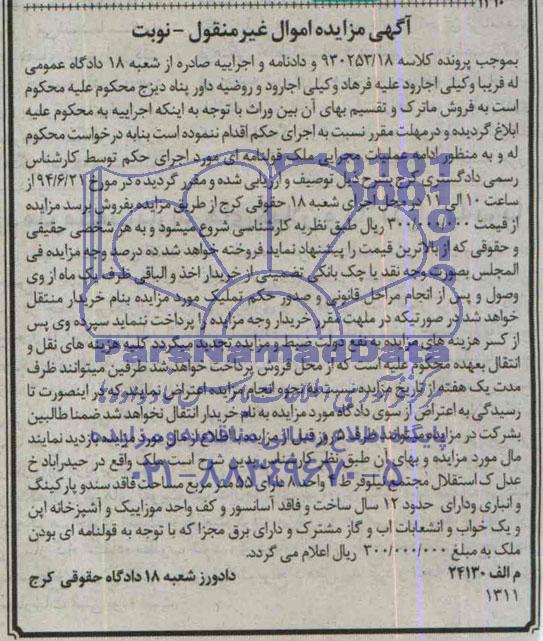 ۱۳۱۰
آگهی مزایده اموال غیرمنقول - نوبت
بموجب پرونده کلاسه ۹۳۰۲۵۳/۱۸ و دادنامه و اجراییه صادره از شعبه ۱۸ دادگاه عمومی
له فریبا وکیلی اجارود علیه فرهاد وکیلی اجارود و روضیه داور پناه دیزج محکوم علیه محکوم
است به فروش ماترک و تقسیم بهای آن بین وراث با توجه به اینکه اجراییه به محکوم علیه
ابلاغ گردیده و درمهلت مقرر نسبت به اجرای حکم اقدام ننموده است بنابه درخواست محکوم
له و به منظور ادامه عملیات مجرایی ملک قولنامه ای مورد اجرای حکم توسط کارشناس
رسمی دادگستری کرج بشرح ذیل توصیف و ارزیابی شده و مقرر گردیده در مورخ ۹۴/۶/۲۱ از
ساعت ۱۰ الی ۱۱ در محل اجرای شعبه ۱۸ حقوقی کرج از طریق مزایده بفروش برسد مزایده
از قیمت ۳۰۰/۰۰۰/۰۰۰ ریال طبق نظریه کارشناسی شروع میشود و به هر شخصی حقیقی
و حقوقی که از بالاترین قیمت را پیشنهاد نماید فروخته خواهد شد ده درصد وجه مزایده فی
المجلس بصورت وجه نقد یا چک بانکی تضمینی از خریدار اخذ و الباقی ظرف یک ماه از وی
وصول و پس از انجام مراحل قانونی و صدور حکم تملیک مورد مزایده بنام خریدار منتقل
خواهد شد در صورتیکه در ملهت مقرر خریدار وجه مزایده را پرداخت ننماید سپرده وی پس
از کسر هزینه های مزایده به نفع دولت ضبط و مزایده تجدید میگردد کلیه هزینه های نقل و
انتقال بعهده محکوم علیه است که از محل فروش پرداخت خواهد شد طرفین میتوانند ظرف
مدت یک هفته از تاریخ مزایده نسبت به نحوه انجام مزایده اعتراض نمایند که در اینصورت تا
رسیدگی به اعتراض از سوی دادگاه مورد مزایده به نام خریدار انتقال نخواهد شد ضمنا طالبین
بشرکت در مزایده میتوانند ظرف ۵ روز قبل از مزایده با اطلاع از مال مورد مزایده بازدید نمایند
مال مورد مزایده و بهای آن طبق نظر کارشناس بدین شرح است ملک واقع در حیدراباد خ
عدل ک استقلال مجتمع نیلوفر ط ۲ واحد ۸ دارای ۵۵ متر مربع مساحت فاقد سند و پارکینگ
و انباری ودارای حدود ۱۲ سال ساخت و فاقد آسانسور و کف واحد موزاییک و آشپزخانه اپن
و یک خواب و انشعابات اب و گاز مشترک و دارای برق مجزا که با توجه به قولنامه ای بودن
ملک به مبلغ ۳۰۰/۰۰۰/۰۰۰ ریال اعلام می گردد.
م الف ۲۴۱۳۰ دادورز شعبه ۱۸ دادگاه حقوقی کرج
۱۳۱۱
ParsNamadData
پایگاه اطلاع رسانی مناقصه و مزایده
۰۲۱-۸۸۳۴۹۶۷۰-۵